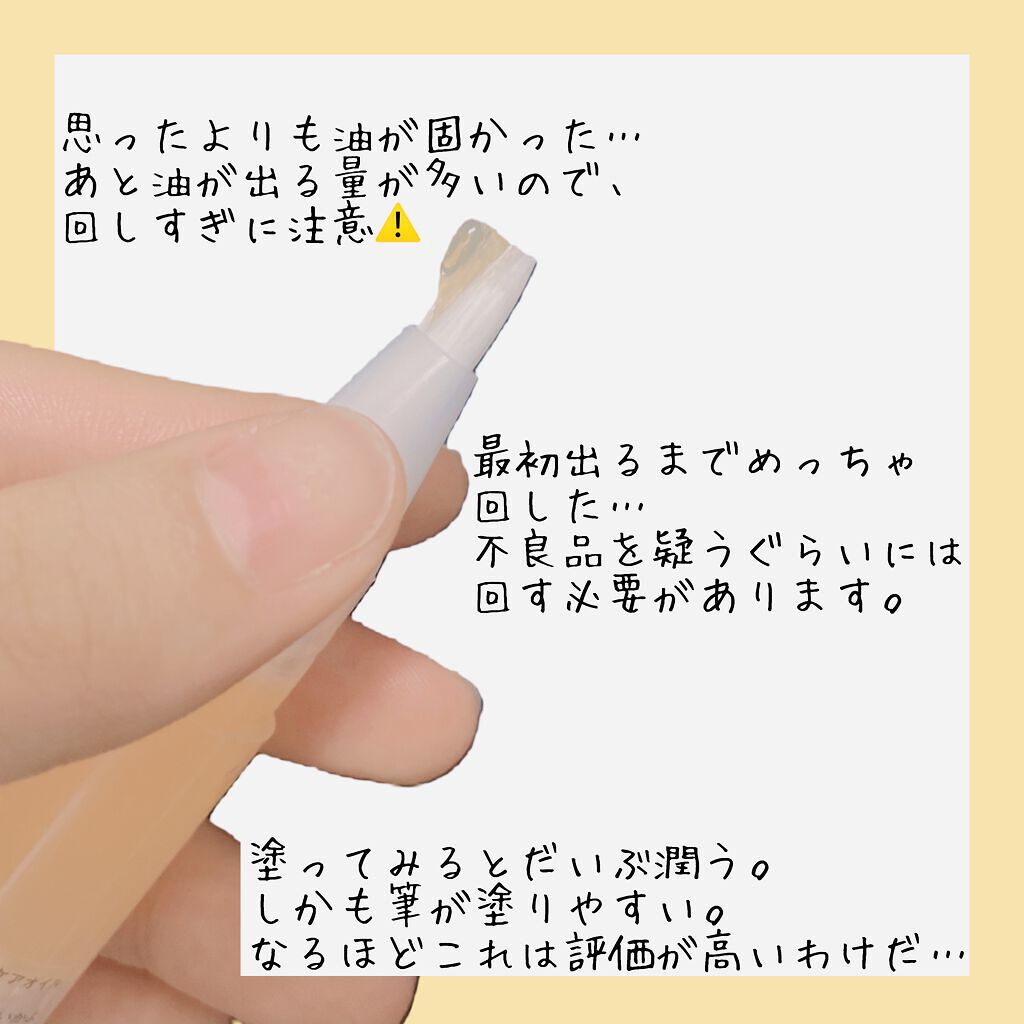 思ったよりも油が固かった…
あと油が出る量が多いので、
回しすぎに注意⚠️
最初出るまでめっちゃ
回した…
不良品を疑うぐらいには
回す必要があります。
塗ってみるとだいぶ潤う。
しかも筆が塗りやすい。
なるほどこれは評価が高いわけだ…
ケアオイル